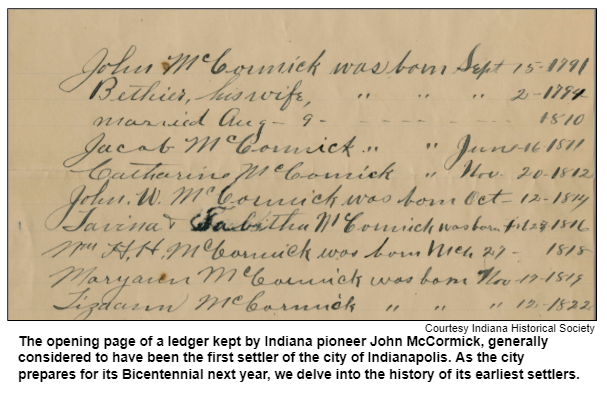 John McCormick was born Sept 15-1791
Bethier, his wife, " " " 2-1794
married Aug - 9 - - - - - - 1810
Jacob McCormick " " June 16 1811
Catharine McCormick " Nov. 20-1812
John. W. McCormick was born Oct- 12-1814
Lavina & Tabitha McCormick was born 1816
Wm H. H. McCormick was born Mch 29- 1818
Maryann McCormick was born Nov 17-1819
Lizdann McCormick " " " 12-1822
Courtesy Indiana Historical Society
The opening page of a ledger kept by Indiana pioneer John McCormick, generally
considered to have been the first settler of the city of Indianapolis. As the city
prepares for its Bicentennial next year, we delve into the history of its earliest settlers.